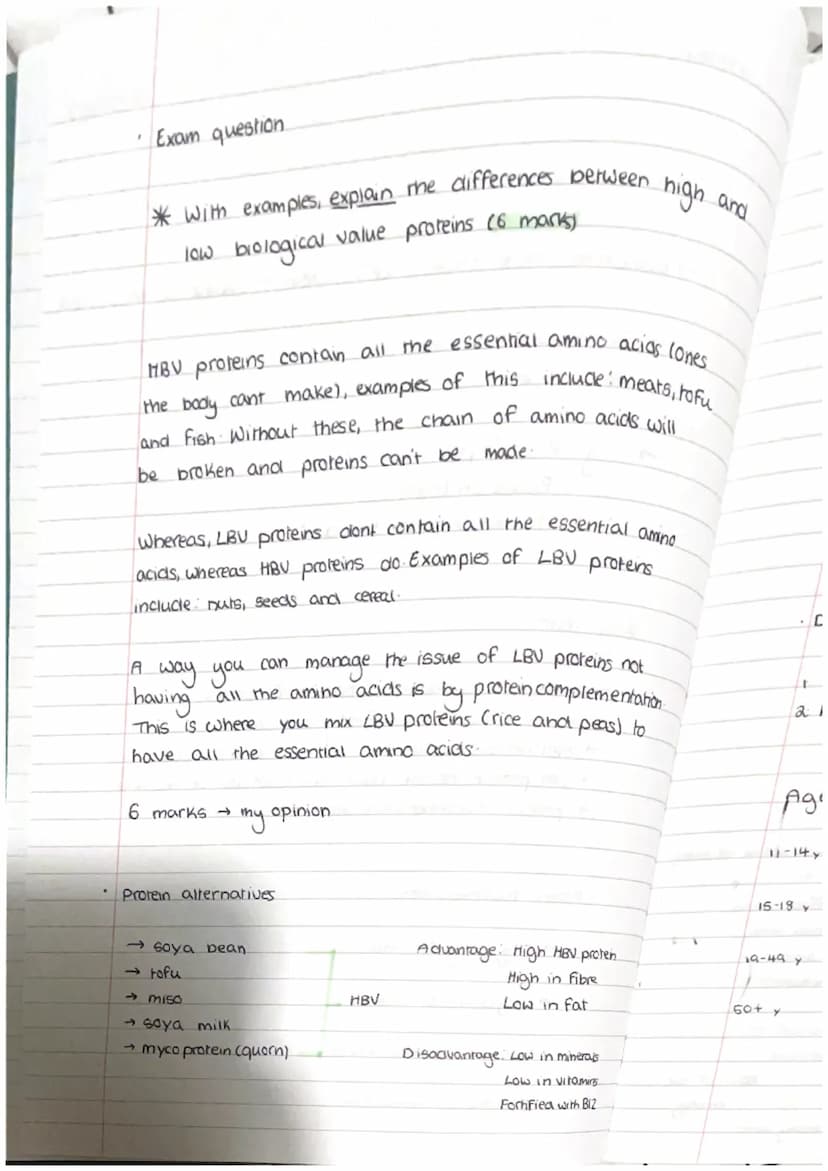 · Exam question
* With examples, explain the differences between high and
low biological value proteins (6 marks)
HBV proteins contain all the essential amino acids (ones
the body cant make), examples of this include: meats, tofu
and fish. Without these, the chain of amino acids will
be broken and proteins can't be made.
Whereas, LBV proteins dont contain all the essential amino
acids, whereas HBV proteins do. Examples of LBV proteins
include: nuts, seeds and cereal.
A way you can manage the issue of LBV proteins not
having all the amino acids is by protein complementation.
This is where you mix LBV proteins (rice and peas) to
have all the essential amino acids.
6 marks → my opinion
· Protein alternatives
→ soya bean
→ tofu
→ miso
→ soya milk
→ mycoprotein (quorn)
HBV
Advantage: High HBV protein
High in fibre
Low in fat
Disadvantage: Low in minerals
Low in vitamins
Fortified with B12
1
2
Ag
11-14 y
15-18 y
19-49 y
50+ y